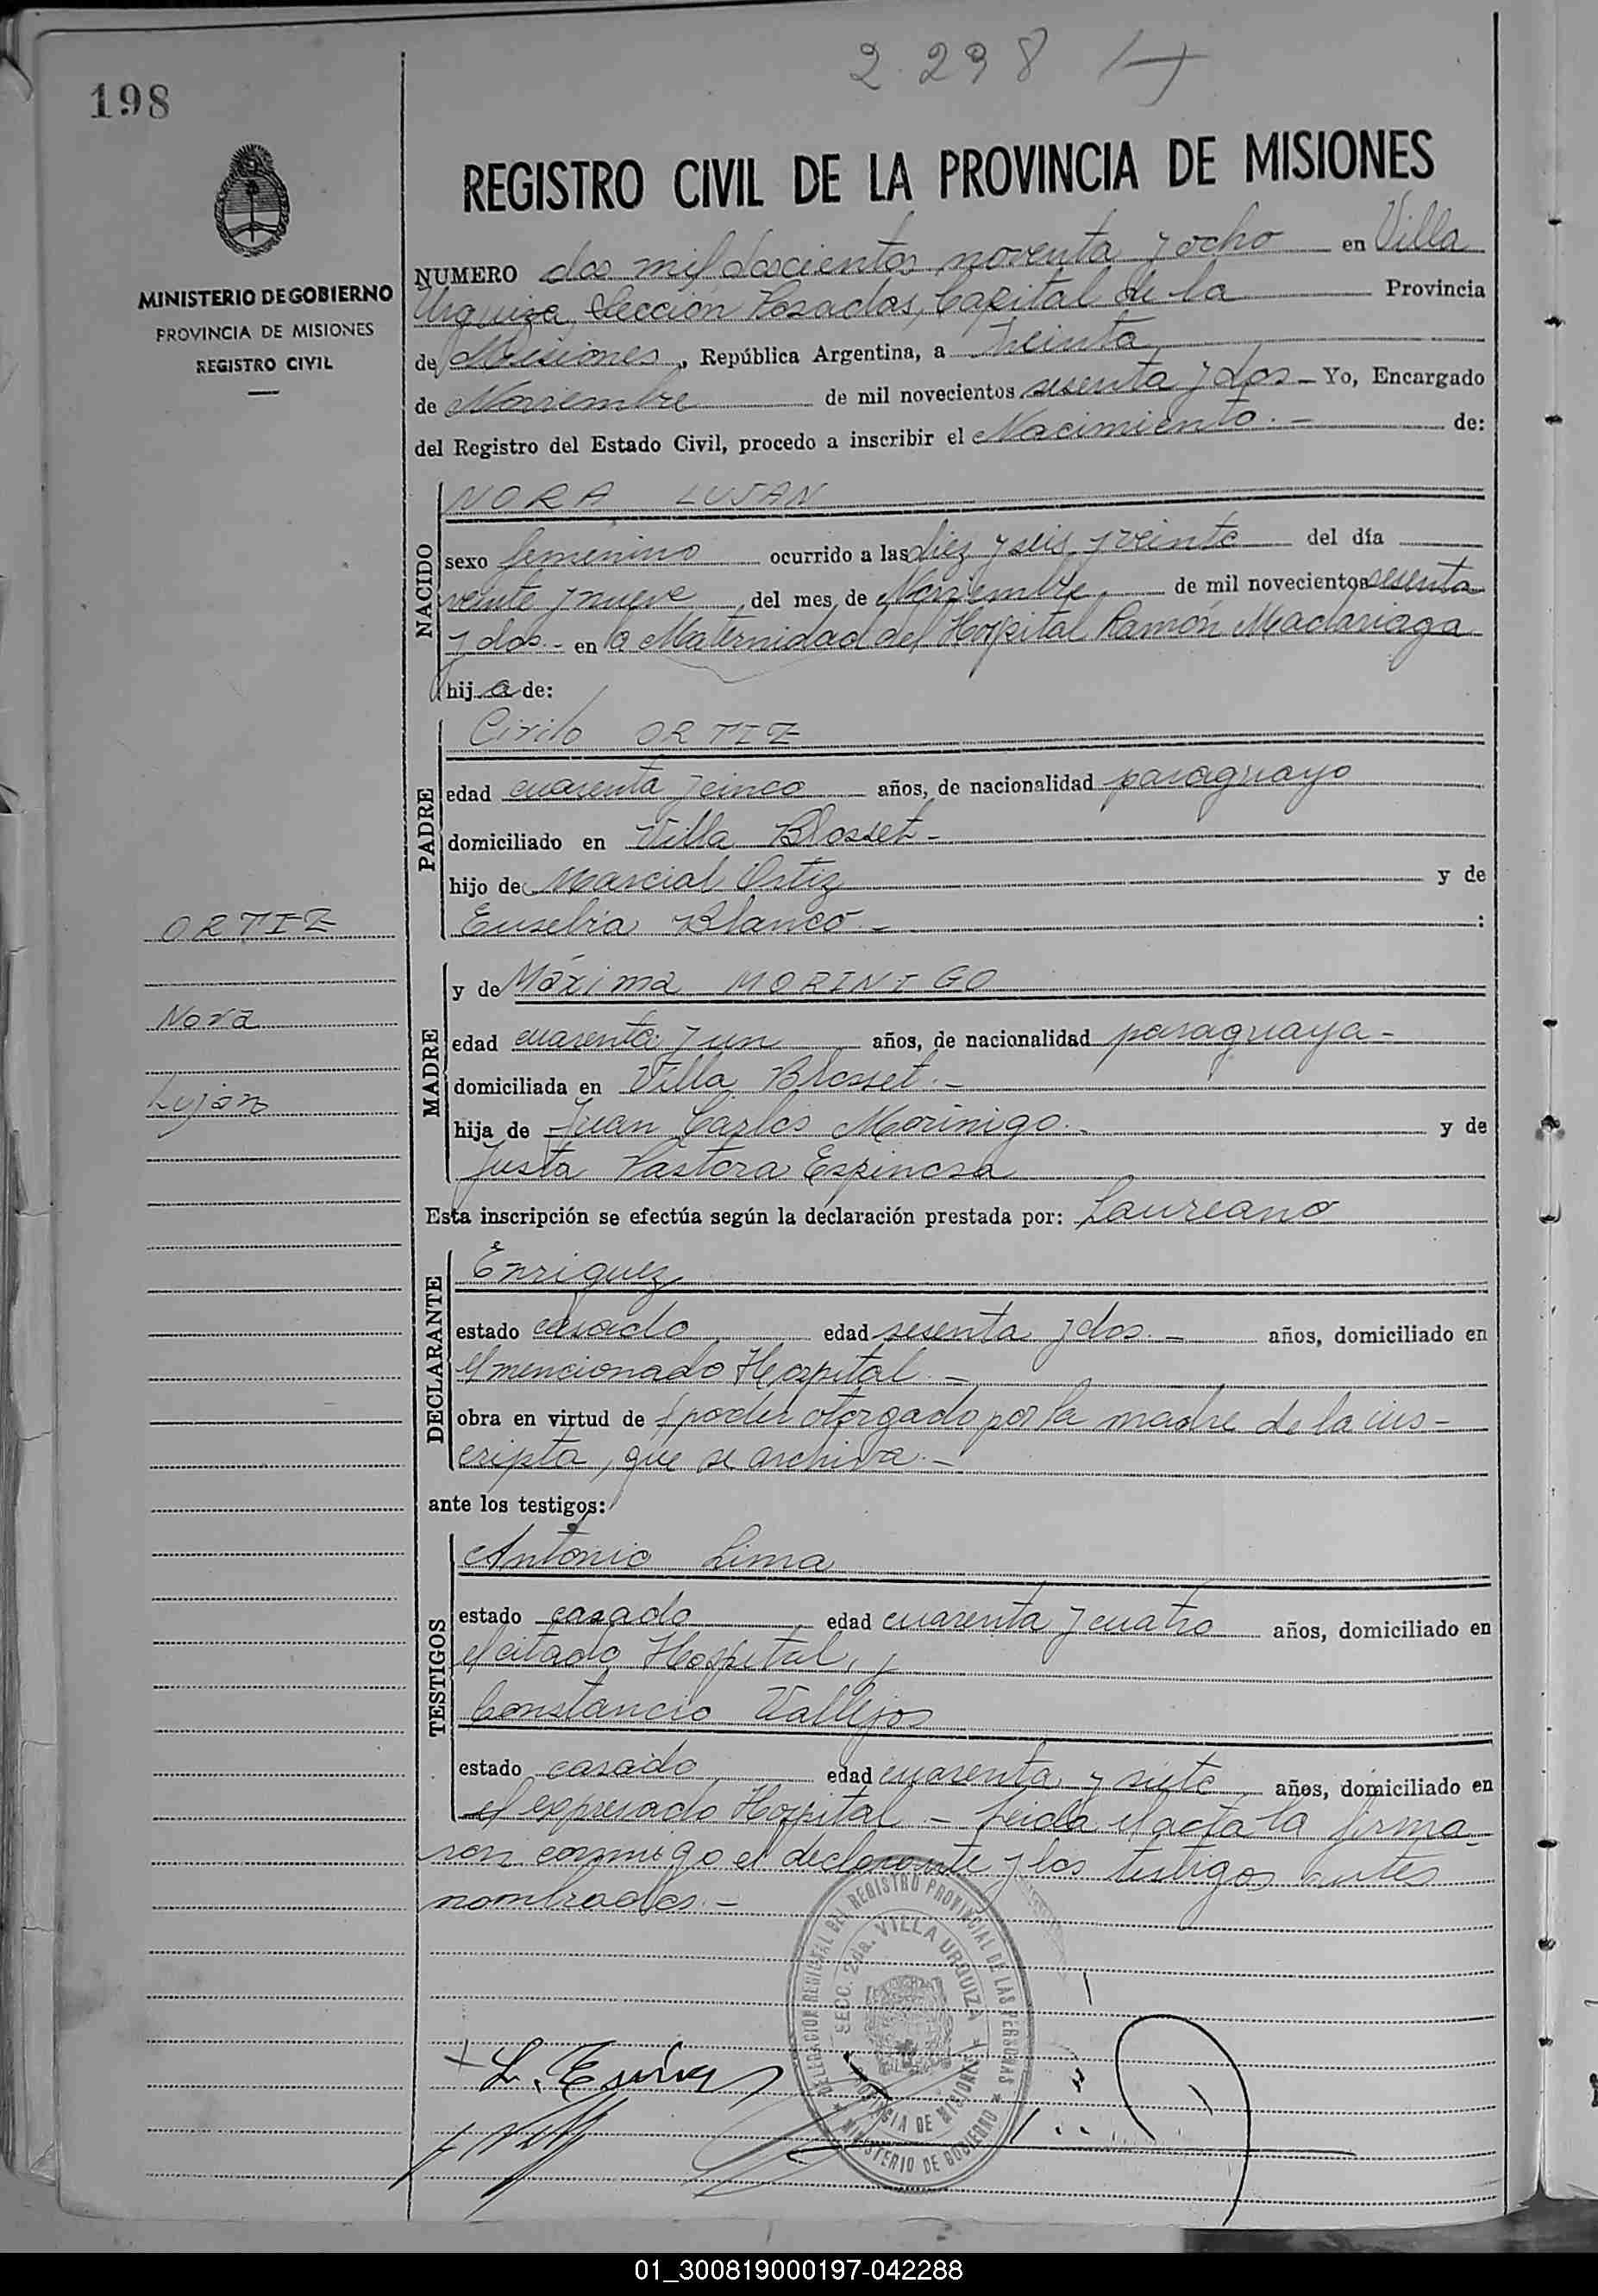 2.298
198
REGISTRO CIVIL DE LA PROVINCIA DE MISIONES
MINISTERIO DE GOBIERNO
PROVINCIA DE MISIONES
REGISTRO CIVIL
NUMERO dos mil doscientos noventa y ocho en Villa
Urquiza, Sección Posadas, Capital de la Provincia
de Misiones, República Argentina, a treinta
de Noviembre de mil novecientos sesenta y dos - Yo, Encargado
del Registro del Estado Civil, procedo a inscribir el Nacimiento.- de:
NACIDO
NORA LUJAN
sexo femenino ocurrido a las diez y seis y veinte del día
veinte y nueve del mes de Noviembre de mil novecientos sesenta
y dos.- en la Maternidad del Hospital Ramón Madariaga
hij a de:
PADRE
Cirilo ORTIZ
edad cuarenta y cinco años, de nacionalidad paraguayo
domiciliado en Villa Blosset -
hijo de Marcial Ortiz y de
Eusebia Blanco.- :
ORTIZ
Nora
Luján
MADRE
y de Máxima MORINIGO
edad cuarenta y un años, de nacionalidad paraguaya -
domiciliada en Villa Blosset.-
hija de Juan Carlos Morinigo.- y de
Justa Pastora Espinosa
Esta inscripción se efectúa según la declaración prestada por: Laureano
DECLARANTE
Enriquez
estado casado edad sesenta y dos.- años, domiciliado en
el mencionado Hospital.-
obra en virtud de poder otorgado por la madre de la ins-
cripta, que se archiva.-
ante los testigos:
TESTIGOS
Antonio Lima
estado casado edad cuarenta y cuatro años, domiciliado en
el citado Hospital, y
Constancio Vallejos
estado casado edad cuarenta y siete años, domiciliado en
el expresado Hospital - Leida el acta la firma-
ron conmigo el declarante y los testigos antes
nombrados.-
DELEGACION REGIONAL DEL REGISTRO PROVINCIAL DE LAS PERSONAS
SECC. 2da. VILLA URQUIZA
PROVINCIA DE MISIONES
MINISTERIO DE GOBIERNO
01_300819000197-042288